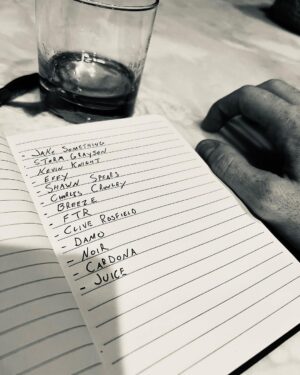 - JAKE SOMETHING
- STORM GRAYSON
- KEVIN KNIGHT
- EFFY
- SHAWN SPEARS
- CHARLES CROWLEY
- BREEZE
- FTR
- CLIVE ROSFIELD
- DAMO
- NOIR
- CARDONA
- JUICE